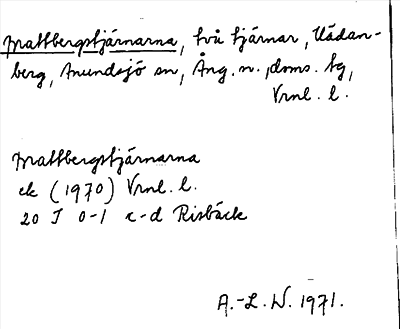 Mattbergstjärnarna, två tjärnar, Uådan-
berg, Anundsjö sn, Ång. n., doms. tg,
Vrnl. l.
Mattbergstjärnarna
ek (1970) Vrnl. l.
20 J 0-1 c-d Risbäck
A.-L. W. 1971.